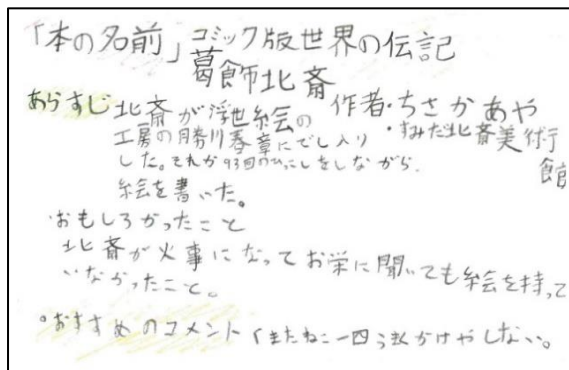 「本の名前」コミック版世界の伝記
葛飾北斎
作者・ちさかあや
・すみだ北斎美術館
あらすじ北斎が浮世絵の
工房の勝川春章にでし入り
した。それから93回のひっこしをしながら、
絵を書いた。
・おもしろかったこと
北斎が火事になってお栄に聞いても絵を持って
いなかったこと。
・おすすめのコメント